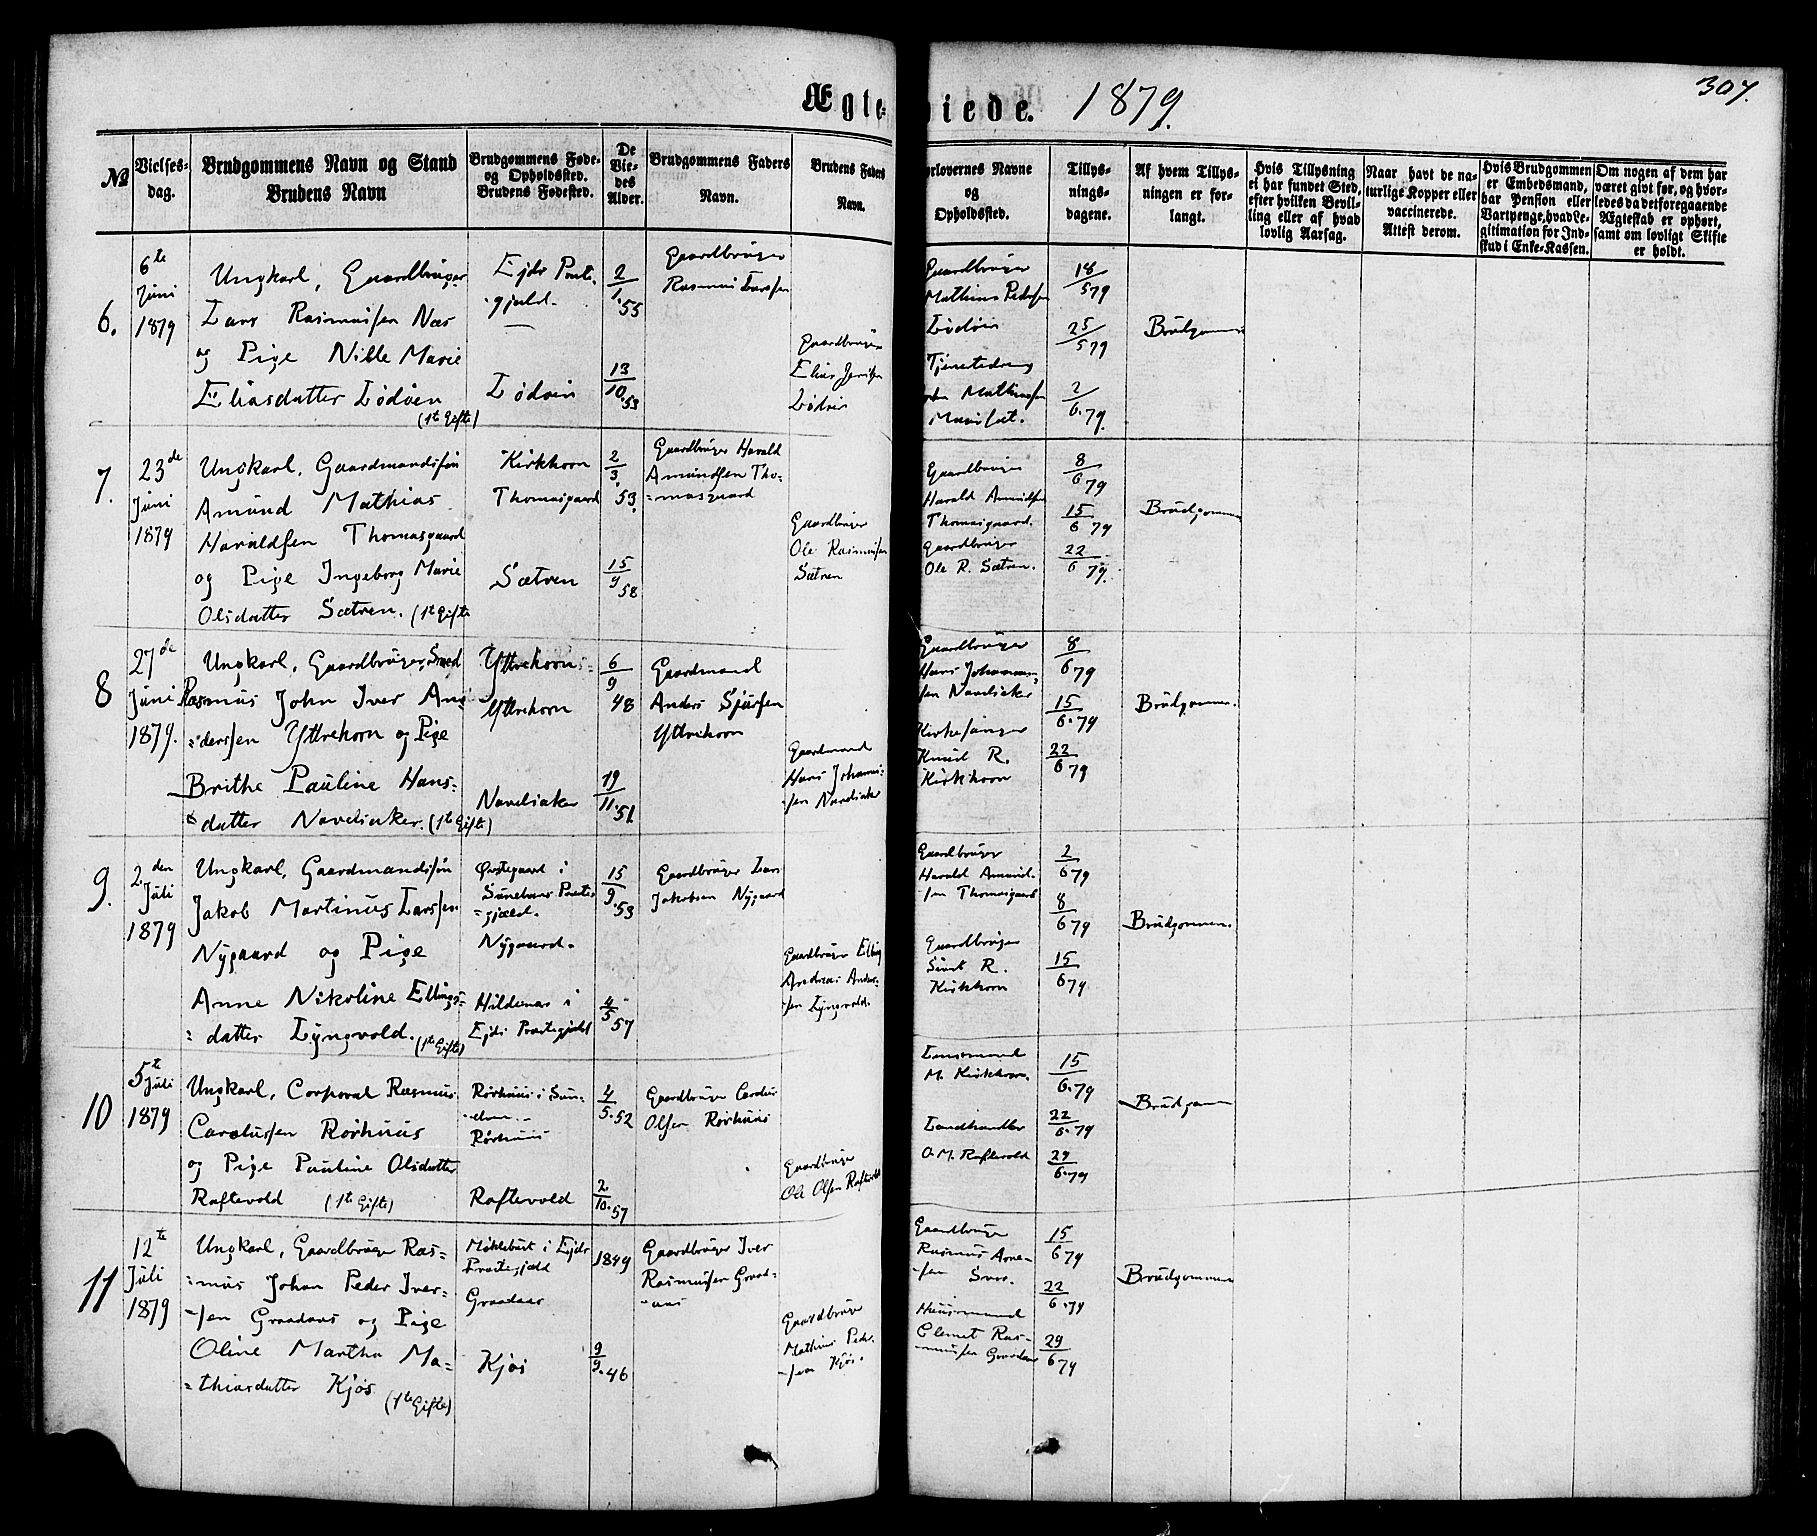 Ægte-
viede. 1879.
307.
№
Vielses-
dag.
Brudgommens Navn og Stand
Brudens Navn
Brudgommens Føde-
og Opholdssted.
Brudens Fødested.
De
Vie-
des
Alder.
Brudgommens Faders
Navn.
Brudens Faders
Navn.
orlovernes Navne
og
Opholdssted.
Tillys-
nings-
dagene.
Af hvem Tillys-
ningen er for-
langt.
Hvis Tillysning
ei har fundet Sted,
efter hvilken Bevil-
ling eller af hvad
lovlig Aarsag.
Naar havt de na-
turlige Kopper eller
vaccinerede.
Attest derom.
Hvis Brudgommen
er Embedsmand,
har Pension eller
Vartpenge, hvad Le-
gitimation for Ind-
skud i Enke-Kassen.
Om nogen af dem har
været givt før, og hvor-
ledes da det foregaaende
Ægteskab er ophørt,
samt om lovligt Skifte
er holdt.
6.
6te
Juni
1879
Ungkarl, Gaardbruger
Lars Rasmussen Næs
og Pige Nille Marie
Eliasdatter Lødøen
(1te Gifte)
Ejds Præste-
gjæld.
Lødøen
2/1.55
13/10.53
Gaardbruger
Rasmus Larssen
Gaardbruger
Elias
Lødøen
Gaardbruger
Mathias Pedersen
Lødøen
Tjenestedreng
Mathiassen
18/5 79
25/5 79
2/6.79.
Brudgommen
7.
23de
Juni
1879
Ungkarl, Gaardmandssøn
Amund Mathias
Haraldsen Thomasgaard
og Pige Ingeborg Marie
Olsdatter Sætren. (1te Gifte
Kirkhorn
Thomasgaard
Sætren
2/3.53.
15/9 58
Gaardbruger Harald
Amundsen Tho-
=masgaard
Gaardbruger
Ole Rasmussen
Sætren
Gaardbruger
Harald Amundsen
Thomasgaard.
Gaardbruger
Ole R. Sætren.
8/6 79
15/6 79
22/6 79.
Brudgommen
8
27de
Juni
1879.
Ungkarl, Gaardbruger, Smed
Rasmus John Iver An-
=derssen Yttrehorn og Pige
Brithe Pauline Hans-
datter Navelsaker. (1te Gifte)
Yttrehorn
Yttrehorn
Navelsaker
6/9 48
19/11.51.
Gaardmand
Anders Sjursen
Yttrehorn
Gaardmand
Hans Johannes-
-sen Navelsaker
Gaardbruger
Hans Johannes-
sen Navelsaker
Kirkesanger
Knud R.
Kirkhorn
8/6 79
15/6.79
22/6 79
Brudgommen.
9.
2den
Juli
1879
Ungkarl, Gaardmandssøn
Jakob Martinus Larssen
Nygaard og Pige
Anne Nikoline Ellings-
=datter Lyngvold. (1te Gifte)
i
Sunelvens Præste-
=gjæld.
Nygaard.
Hildenæs i
Ejds Præstegjæld
15/9.53
4/5 57
Gaardbruger Lars
Jakobsen Nygaard
Gaardbruger Elling
Andreas Anders-
-sen Lyngvold.
Gaardbruger
Harald Amund-
-sen Thomasgaard
Gaardbruger
Sivert R.
Kirkhorn
2/6 79
8/6 79
15/6 79
Brudgommen.
10
5te
Juli
1879
Ungkarl, Corporal Rasmus
Carolussen Rørhuus
og Pige Pauline Olsdatter
Raftevold (1te Gifte)
Rørhuus i Sun-
elven
Rørhuus
Raftevold
4/5.52
2/10.57
Gaardbruger Carolus
Olsen Rørhuus
Gaardbruger
Ole Olsen Raftevold
Lensmand
M. Kirkhorn.
Landhandler
O. M. Raftevold
15/6.79
22/6.79
29/6.79
Brudgommen
11
12te
Juli
1879
Ungkarl, Gaardbruger Ras-
=mus Johan Peder Iver-
-sen Graadaas og Pige
Oline Martha Ma-
=thiasdatter Kjøs
(1te Gifte)
Myklebust i Ejds
Præstegjæld
Graadaas
Kjøs
1849
9/9.46
Gaardbruger Iver
Rasmussen Graad-
-aas
Gaardbruger
Mathias Peder-
-sen Kjøs.
Gaardbruger
Rasmus Arne-
-sen
Huusmand
Clemet Ras-
-mussen Graadaas
15/6 79
22/6.79
29/6 79
Brudgommen